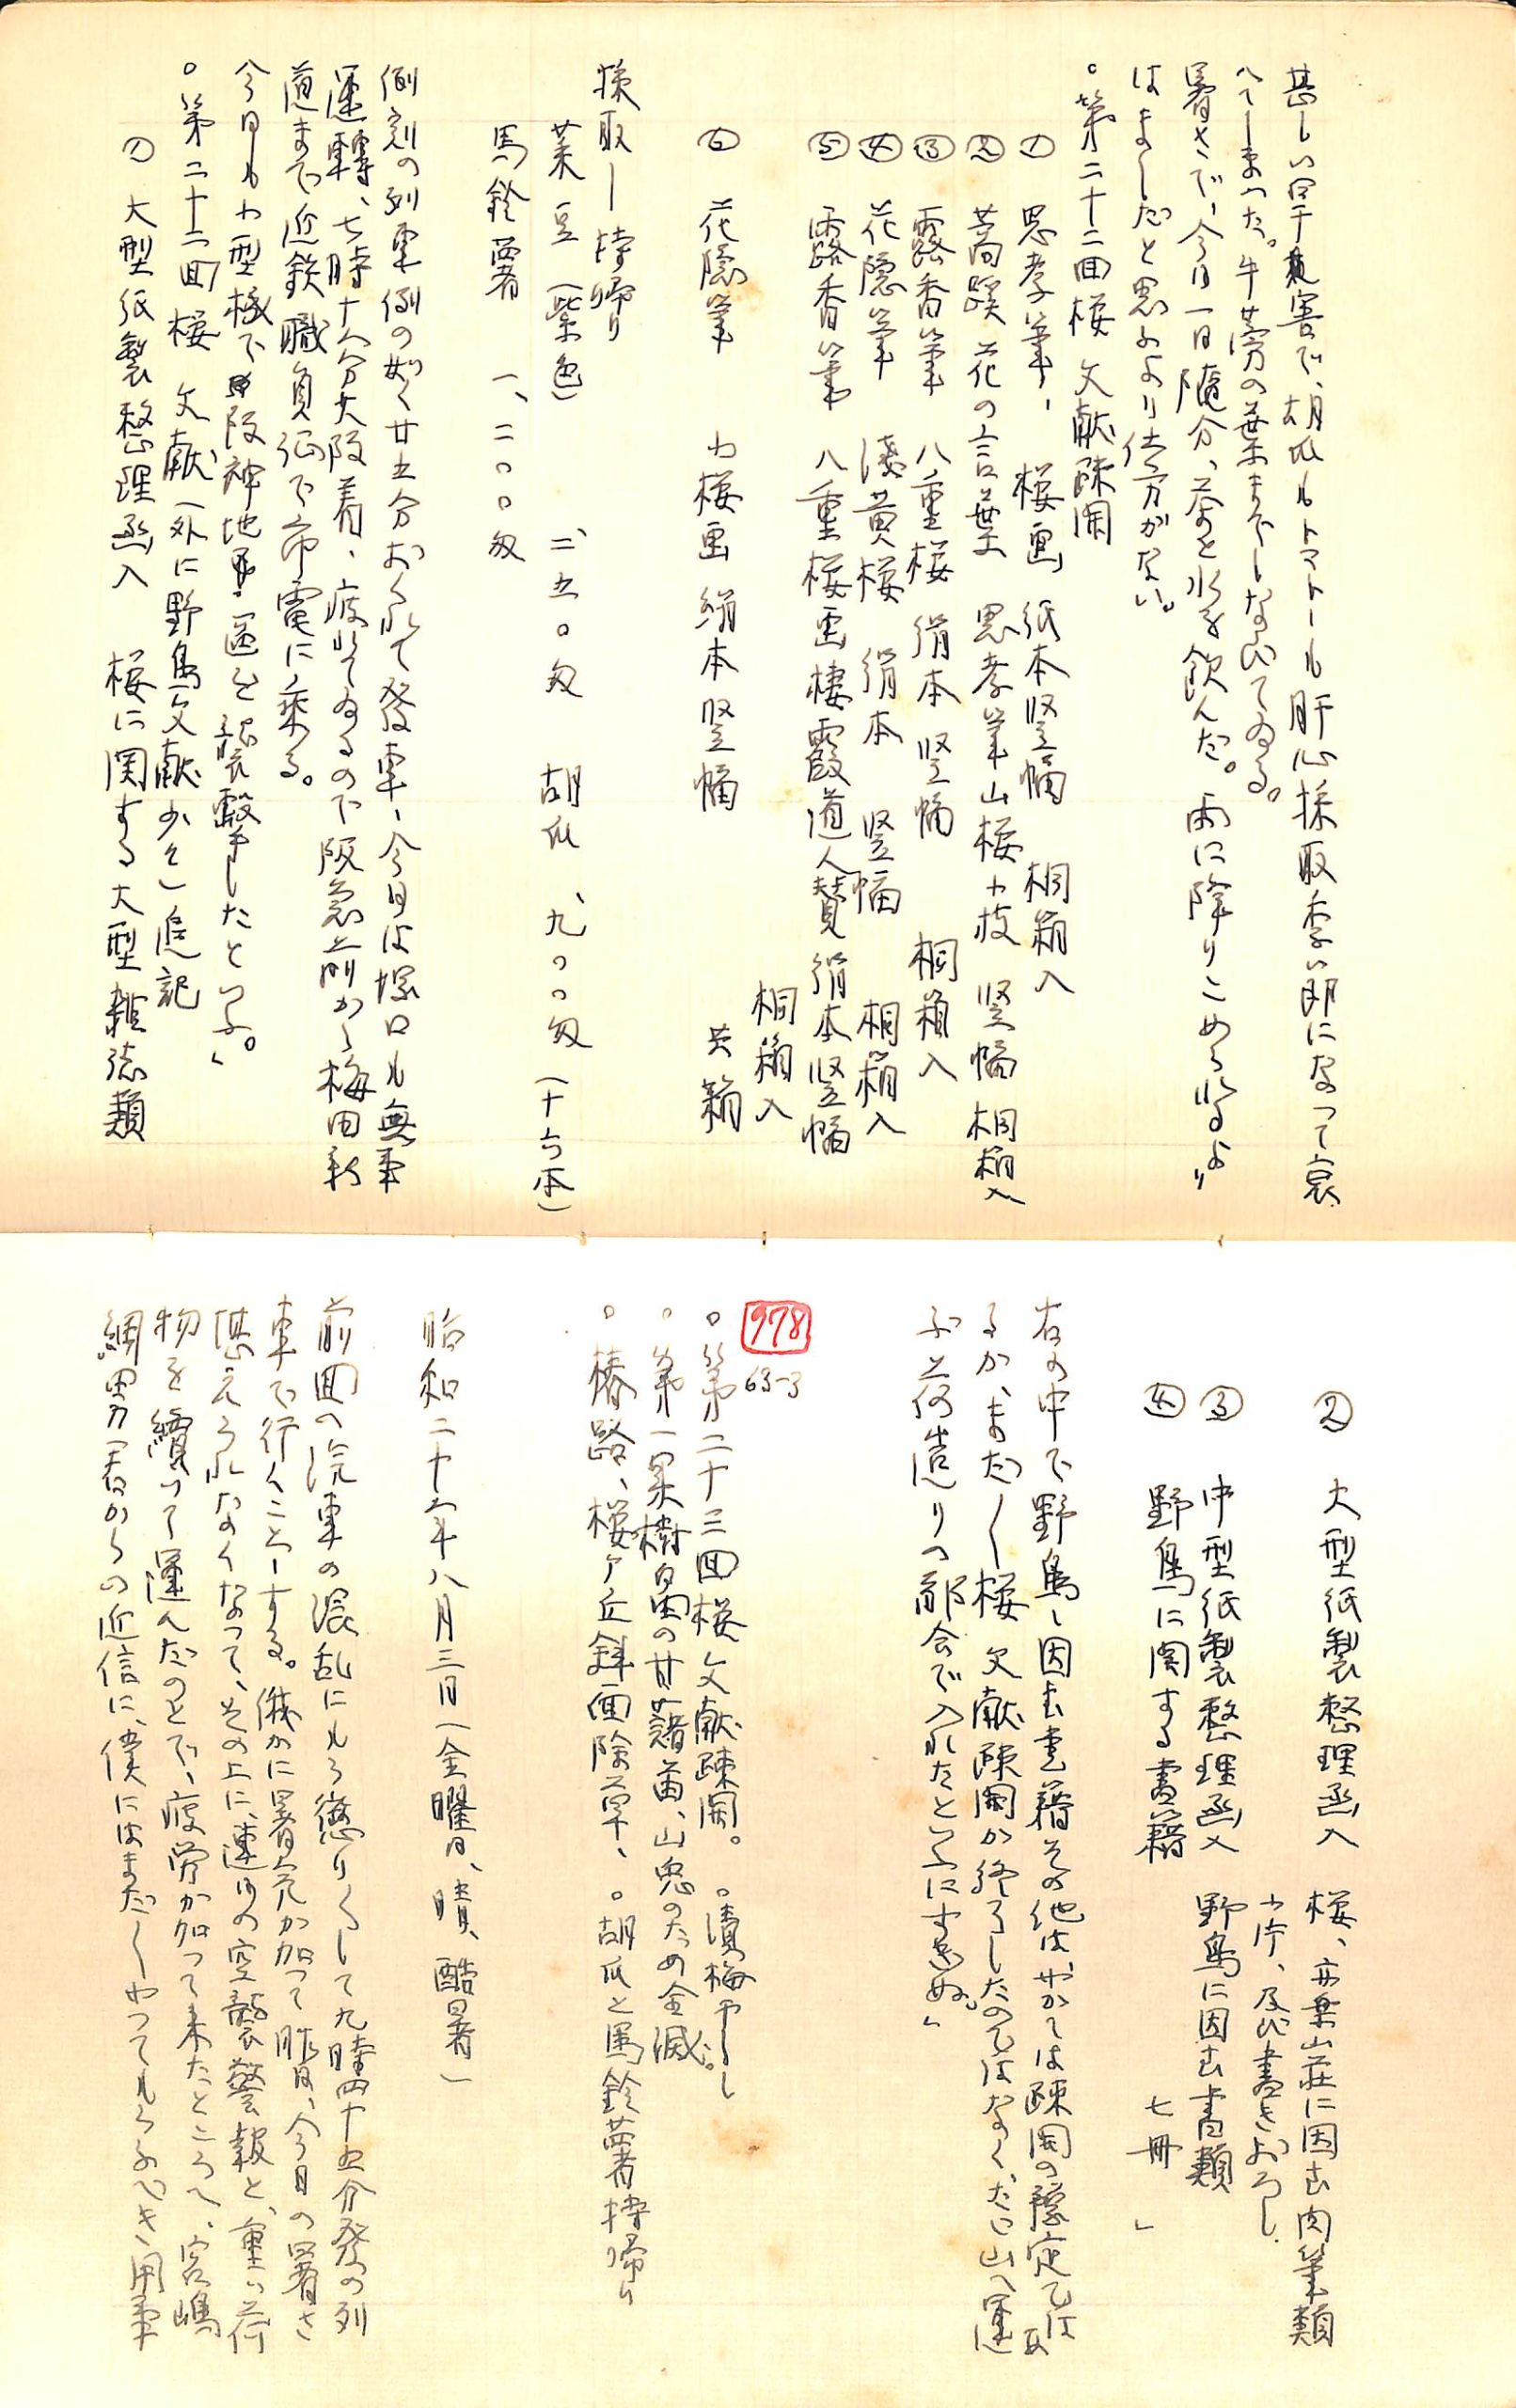 甚しい旱魃害で、胡瓜もトマトーも肝心採取季節になって衰
へてしまった。牛蒡の葉までしなびてゐる。
暑さで、今日一日随分、茶と水を飲んだ。雨に降りこめられるより
はましだと思ふより仕方がない。
○第二十二回桜文献疎開
① 思孝筆、 桜画 紙本竪幅 桐箱入
② 蒿蹊花の言葉 思孝筆山桜小枝 竪幅 桐箱入
③ 露香筆 八重桜 絹本竪幅 桐箱入
④ 花隠筆 浅黄桜 絹本 竪幅 桐箱入
⑤ 露香筆 八重桜画棲霞道人賛 絹本竪幅
桐箱入
⑥ 花隠筆 小桜画 絹本竪幅 共箱
採取し持帰り
菜豆(紫色) 二、五〇匁 胡瓜、九〇〇匁(十六本)
馬鈴薯 一、二〇〇匁
例刻の列車例の如く廿五分おくれて発車、今日は塚口も無事
運転、七時十八分大阪着、疲れてゐるので阪急前から梅田新
道まで近鉄職員征で市電に乗る。
今日も小型機で阪神地區を襲撃したといふ。」
○第二十二回桜文献(外に野鳥文献少々)追記
① 大型紙製整理函入 桜に関する大型雑誌類
② 大型紙製整理函入 桜、亦楽山荘に因む肉筆類
小片、及び書きおろし
③ 中型紙製整理函入 野鳥に因む書類
④ 野鳥に関する書籍 七冊 」
右の中で野鳥に因む書籍その他はやがては疎開の豫定では
あるが、まだ〱桜文献疎開が終了したのではなく、たゞ山へ運
ぶ荷造りの都合で入れたといふにすぎぬ。」
978
63-3
○第二十三回桜文献疎開。 ○漬梅干し
○第一果樹園の甘藷苗、山兎のため全滅。
○椿路、桜ヶ丘斜面除草、 ○胡瓜と馬鈴薯持帰り
昭和二十年八月三日(金曜日、晴、酷暑)
前回の汽車の混乱にもう懲り〱して九時四十五分発の列
車で行くことゝする。俄かに暑気が加って昨日、今日の暑さ
堪えられなくなって、その上に、連日の空襲警報と、重い荷
物を續けて運んだのとで、疲労が加って来たところへ、宮嶋
綱男君からの近信に、僕にはまだ〱やってもらふべき用事